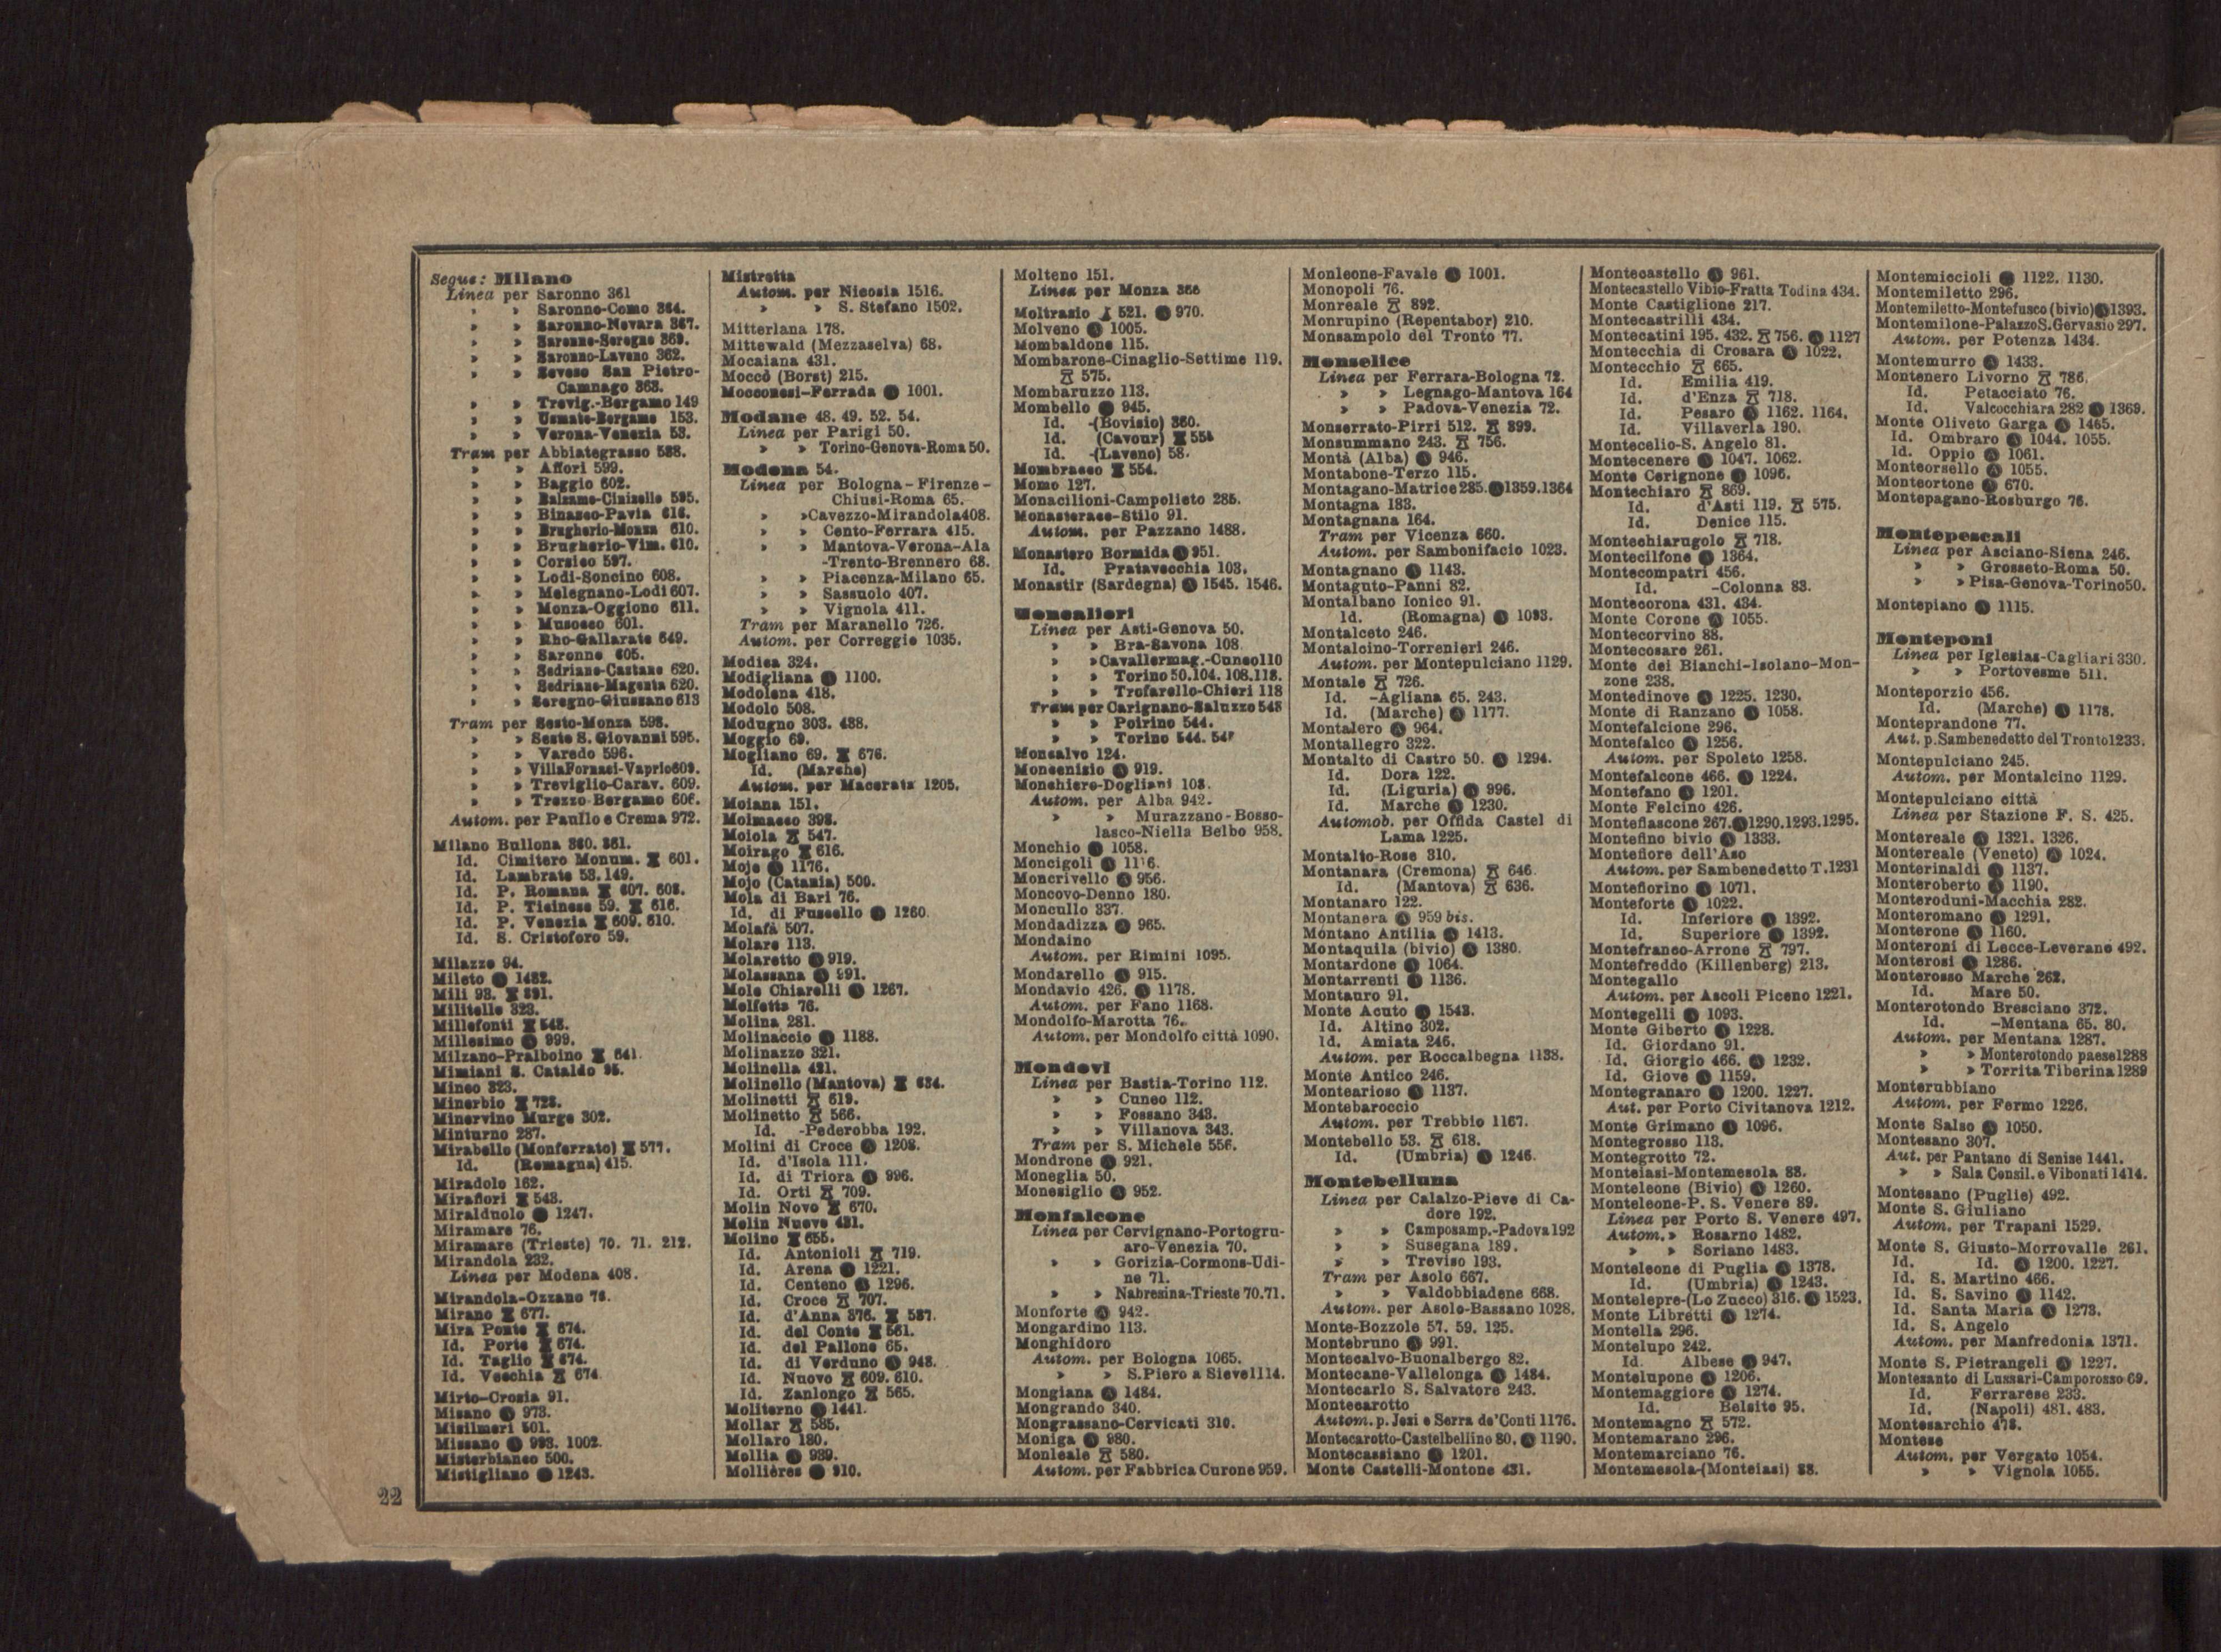 Segue: Milano
Linea per Saronno 361
» » Saronno-Como 364.
» » Saronno-Novara 367.
» » Saronno-Seregno 369.
» » Saronno-Laveno 362.
» » Seveso San Pietro-
Camnago 363.
» » Trevig.-Bergamo 149
» » Usmate-Bergamo 153.
» » Verona-Venezia 53.
Tram per Abbiategrasso 588.
» » Affori 599.
» » Baggio 602.
» » Balsamo-Cinisello 595.
» » Binasco-Pavia 616.
» » Brugherio-Monza 610.
» » Brugherio-Vim. 610.
» » Corsico 597.
» » Lodi-Soncino 608.
» » Melegnano-Lodi 607.
» » Monza-Oggiono 611.
» » Musocco 601.
» » Rho-Gallarate 649.
» » Saronno 605.
» » Sedriano-Castano 620.
» » Sedriano-Magenta 620.
» » Seregno-Giussano 613
Tram per Sesto-Monza 598.
» » Sesto S. Giovanni 595.
» » Varedo 596.
» » Villa Fornaci-Vaprio 609.
» » Treviglio-Carav. 609.
» » Trezzo Bergamo 606.
Autom. per Paullo e Crema 972.
Milano Bullona 360. 361.
Id. Cimitero Monum. 601.
Id. Lambrate 53. 149.
Id. P. Romana 607. 608.
Id. P. Ticinese 59. 616.
Id. P. Venezia 609. 610.
Id. S. Cristoforo 59.
Milazzo 94.
Mileto 1482.
Mili 93. 891.
Militello 323.
Millefonti 548.
Millesimo 999.
Milzano-Pralboino 641.
Mimiani S. Cataldo 95.
Mineo 323.
Minerbio 728.
Minervino Murge 302.
Minturno 287.
Mirabello (Monferrato) 577.
Id. (Romagna) 415.
Miradolo 162.
Mirafiori 543.
Miralduolo 1247.
Miramare 76.
Miramare (Trieste) 70. 71. 212.
Mirandola 232.
Linea per Modena 408.
Mirandola-Ozzano 76.
Mirano 677.
Mira Ponte 674.
Id. Porte 674.
Id. Taglio 674.
Id. Vecchia 674
Mirto-Crosia 91.
Misano 973.
Misilmeri 501.
Missano 993. 1002.
Misterbianco 500.
Mistigliano 1243.
Mistretta
Autom. per Nicosia 1516.
» » S. Stefano 1502.
Mitterlana 178.
Mittewald (Mezzaselva) 68.
Mocaiana 431.
Moccò (Borst) 215.
Mocconesi-Ferrada 1001.
Modane 48. 49. 52. 54.
Linea per Parigi 50.
» » Torino-Genova-Roma 50.
Modena 54.
Linea per Bologna-Firenze-
Chiusi-Roma 65.
» » Cavezzo-Mirandola 408.
» » Cento-Ferrara 415.
» » Mantova-Verona-Ala
-Trento-Brennero 68.
» » Piacenza-Milano 65.
» » Sassuolo 407.
» » Vignola 411.
Tram per Maranello 726.
Autom. per Correggio 1035.
Modica 324.
Modigliana 1100.
Modolena 418.
Modolo 508.
Modugno 303. 488.
Moggio 69.
Mogliano 69. 676.
Id. (Marche)
Autom. per Macerata 1205.
Moiana 151.
Moimacco 398.
Moiola 547.
Moirago 616.
Moje 1176.
Mojo (Catania) 509.
Mola di Bari 76.
Id. di Fuscello 1260.
Molafà 507.
Molare 113.
Molaretto 919.
Molassana 991.
Mole Chiarelli 1267.
Molfetta 76.
Molina 281.
Molinaccio 1188.
Molinazzo 321.
Molinella 421.
Molinello (Mantova) 634.
Molinetti 619.
Molinetto 566.
Id. -Pederobba 192.
Molini di Croce 1208.
Id. d'Isola 111.
Id. di Triora 996.
Id. Orti 709.
Molin Novo 670.
Molin Nuovo 421.
Molino 655.
Id. Antonioli 719.
Id. Arena 1221.
Id. Centeno 1296.
Id. Croce 707.
Id. d'Anna 376. 587.
Id. del Conte 561.
Id. del Pallone 65.
Id. di Verduno 948.
Id. Nuovo 609. 610.
Id. Zanlongo 565.
Moliterno 1441.
Mollar 585.
Mollaro 180.
Mollia 939.
Mollières 910.
Molteno 151.
Linea per Monza 366
Moltrasio 521. 970.
Molveno 1005.
Mombaldone 115.
Mombarone-Cinaglio-Settime 119.
575.
Mombaruzzo 113.
Mombello 945.
Id. -(Bovisio) 360.
Id. (Cavour)
Id. -(Laveno) 58.
Mombracco 554.
Momo 127.
Monacilioni-Campolieto 285.
Monasterace-Stilo 91.
Autom. per Pazzano 1488.
Monastero Bormida 951.
Id. Pratavecchia 103.
Monastir (Sardegna) 1545. 1546.
Moncalieri
Linea per Asti-Genova 50.
» » Bra-Savona 108
» » Cavallermag.-Cuneo 110
» » Torino 50. 104. 108. 118.
» » Trofarello-Chieri 118
Tram per Carignano-Saluzzo 548
» » Poirino 544.
» » Torino 544.
Moncalvo 124.
Moncenisio 919.
Monchiero-Dogliani 108.
Autom. per Alba 942.
» » Murazzano-Bosso-
lasco-Niella Belbo 958.
Monchio 1058.
Moncigoli 1116.
Moncrivello 956.
Moncovo-Denno 180.
Moncullo 337.
Mondadizza 965.
Mondaino
Autom. per Rimini 1095.
Mondarello 915.
Mondavio 426. 1178.
Autom. per Fano 1168.
Mondolfo-Marotta 76.
Autom. per Mondolfo città 1090.
Mondovi
Linea per Bastia-Torino 112.
» » Cuneo 112.
» » Fossano 343.
» » Villanova 343.
Tram per S. Michele 556.
Mondrone 921.
Moneglia 50.
Monesiglio 952.
Monfalcone
Linea per Cervignano-Portogru-
aro-Venezia 70.
» » Gorizia-Cormons-Udi-
ne 71.
» » Nabresina-Trieste 70.71.
Monforte 942.
Mongardino 113.
Monghidoro
Autom. per Bologna 1065.
» » S. Piero a Sieve 1114.
Mongiana 1484.
Mongrando 340.
Mongrassano-Cervicati 310.
Moniga 980.
Monleale 580.
Autom. per Fabbrica Curone 959.
Monleone-Favale 1001.
Monopoli 76.
Monreale 892.
Monrupino (Repentabor) 210.
Monsampolo del Tronto 77.
Monselice
Linea per Ferrara-Bologna 72.
» » Legnago-Mantova 164
» » Padova-Venezia 72.
Monserrato-Pirri 512. 899.
Monsummano 243. 756.
Montà (Alba) 946.
Montabone-Terzo 115.
Montagano-Matrice 285. 1359.1364
Montagna 183.
Montagnana 164.
Tram per Vicenza 660.
Autom. per Sambonifacio 1023.
Montagnano 1143.
Montaguto-Panni 82.
Montalbano Ionico 91.
Id. (Romagna) 1093.
Montalceto 246.
Montalcino-Torrenieri 246.
Autom. per Montepulciano 1129.
Montale 726.
Id. -Agliana 65. 243.
Id. (Marche) 1177.
Montalero 964.
Montallegro 322.
Montalto di Castro 50. 1294.
Id. Dora 122.
Id. (Liguria) 996.
Id. Marche 1230.
Automob. per Offida Castel di
Lama 1225.
Montalto-Rose 310.
Montanara (Cremona) 646.
Id. (Mantova) 636.
Montanaro 122.
Montanera 959 bis.
Montano Antilia 1413.
Montaquila (bivio) 1380.
Montardone 1064.
Montarrenti 1136.
Montauro 91.
Monte Acuto 1543.
Id. Altino 302.
Id. Amiata 246.
Autom. per Roccalbegna 1138.
Monte Antico 246.
Montearioso 1137.
Montebaroccio
Autom. per Trebbio 1167.
Montebello 53. 618.
Id. (Umbria) 1246.
Montebelluna
Linea per Calalzo-Pieve di Ca-
dore 192.
» » Camposamp.-Padova 192
» » Susegana 189.
» » Treviso 193.
Tram per Asolo 667.
» » Valdobbiadene 668.
Autom. per Asolo-Bassano 1028.
Monte-Bozzole 57. 59. 125.
Montebruno 991.
Montecalvo-Buonalbergo 82.
Montecane-Vallelonga 1484.
Montecarlo S. Salvatore 243.
Montecarotto
Autom. p. Jesi e Serra de'Conti 1176.
Montecarotto-Castelbellino 80. 1190.
Montecassiano 1201.
Monte Castelli-Montone 431.
Montecastello 961.
Montecastello Vibio-Fratta Todina 434.
Monte Castiglione 217.
Montecastrilli 434.
Montecatini 195. 432. 756. 1127
Montecchia di Crosara 1022.
Montecchio 665.
Id. Emilia 419.
Id. d'Enza 718.
Id. Pesaro 1162. 1164.
Id. Villaverla 190.
Montecelio-S. Angelo 81.
Montecenere 1047. 1062.
Monte Cerignone 1096.
Montechiaro 869.
Id. d'Asti 119. 575.
Id. Denice 115.
Montechiarugolo 718.
Montecilfone 1364.
Montecompatri 456.
Id. -Colonna 83.
Montecorona 431. 434.
Monte Corone 1055.
Montecorvino 88.
Montecosaro 261.
Monte dei Bianchi-Isolano-Mon-
zone 238.
Montedinove 1225. 1230.
Monte di Ranzano 1058.
Montefalcione 296.
Montefalco 1256.
Autom. per Spoleto 1258.
Montefalcone 466. 1224.
Montefano 1201.
Monte Felcino 426.
Montefiascone 267. 1290.1293.1295.
Montefino bivio 1333.
Montefiore dell'Aso
Autom. per Sambenedetto T. 1231
Montefiorino 1071.
Monteforte 1022.
Id. Inferiore 1392.
Id. Superiore 1392.
Montefranco-Arrone 797.
Montefreddo (Killenberg) 213.
Montegallo
Autom. per Ascoli Piceno 1221.
Montegelli 1093.
Monte Giberto 1228.
Id. Giordano 91.
Id. Giorgio 466. 1232.
Id. Giove 1159.
Montegranaro 1200. 1227.
Aut. per Porto Civitanova 1212.
Monte Grimano 1096.
Montegrosso 113.
Montegrotto 72.
Monteiasi-Montemesola 88.
Monteleone (Bivio) 1260.
Monteleone-P. S. Venere 89.
Linea per Porto S. Venere 497.
Autom. » Rosarno 1482.
» » Soriano 1483.
Monteleone di Puglia 1378.
Id. (Umbria) 1243.
Montelepre-(Lo Zucco) 316. 1523.
Monte Libretti 1274.
Montella 296.
Montelupo 242.
Id. Albese 947.
Montelupone 1206.
Montemaggiore 1274.
Id. Belsito 95.
Montemagno 572.
Montemarano 296.
Montemarciano 76.
Montemesola-(Monteiasi) 88.
Montemiccioli 1122. 1130.
Montemiletto 296.
Montemiletto-Montefusco (bivio) 1393.
Montemilone-Palazzo S. Gervasio 297.
Autom. per Potenza 1434.
Montemurro 1433.
Montenero Livorno 786.
Id. Petacciato 76.
Id. Valcocchiara 282 1369.
Monte Oliveto Garga 1465.
Id. Ombraro 1044. 1055.
Id. Oppio 1061.
Monteorsello 1055.
Monteortone 670.
Montepagano-Rosburgo 76.
Montepescali
Linea per Asciano-Siena 246.
» » Grosseto-Roma 50.
» » Pisa-Genova-Torino 50.
Montepiano 1115.
Monteponi
Linea per Iglesias-Cagliari 330.
» » Portovesme 511.
Monteporzio 456.
Id. (Marche) 1178.
Monteprandone 77.
Aut. p. Sambenedetto del Tronto 1233.
Montepulciano 245.
Autom. per Montalcino 1129.
Montepulciano città
Linea per Stazione F. S. 425.
Montereale 1321. 1326.
Montereale (Veneto) 1024.
Monterinaldi 1137.
Monteroberto 1190.
Monteroduni-Macchia 282.
Monteromano 1291.
Monterone 1160.
Monteroni di Lecce-Leverano 492.
Monterosi 1286.
Monterosso Marche 262.
Id. Mare 50.
Monterotondo Bresciano 372.
Id. -Mentana 65. 80.
Autom. per Mentana 1287.
» » Monterotondo paese 1288
» » Torrita Tiberina 1289
Monterubbiano
Autom. per Fermo 1226.
Monte Salso 1050.
Montesano 307.
Aut. per Pantano di Senise 1441.
» » Sala Consil. e Vibonati 1414.
Montesano (Puglie) 492.
Monte S. Giuliano
Autom. per Trapani 1529.
Monte S. Giusto-Morrovalle 261.
Id. Id. 1200. 1227.
Id. S. Martino 466.
Id. S. Savino 1142.
Id. Santa Maria 1273.
Id. S. Angelo
Autom. per Manfredonia 1371.
Monte S. Pietrangeli 1227.
Montesanto di Lussari-Camporosso 69.
Id. Ferrarese 233.
Id. (Napoli) 481. 483.
Montesarchio 478.
Montese
Autom. per Vergato 1054.
» » Vignola 1055.
22